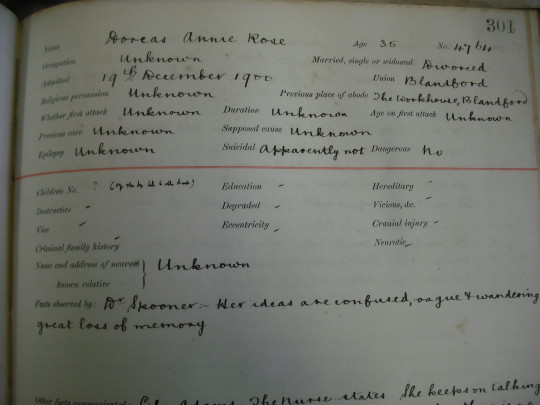 301
Name Dorcas Annie Rose Age 35 No. 4764
Occupation Unknown Married, single or widowed Divorced
Admitted 19th December 1900 Union Blandford
Religious persuasion Unknown Previous place of abode The Workhouse, Blandford
Whether first attack Unknown Duration Unknown Age on first attack Unknown
Previous care Unknown Supposed cause Unknown
Epilepsy Unknown Suicidal Apparently not Dangerous No
Children No. ? Education " Hereditary "
Destructive " Degraded " Vicious, &c. "
Vice " Eccentricity " Cranial injury "
Criminal family history " Neurotic "
Name and address of nearest known relative } Unknown
Facts observed by: Dr Spooner:- Her ideas are confused, vague & wandering
great loss of memory
Other facts communicated: The Nurse states She keeps on talking